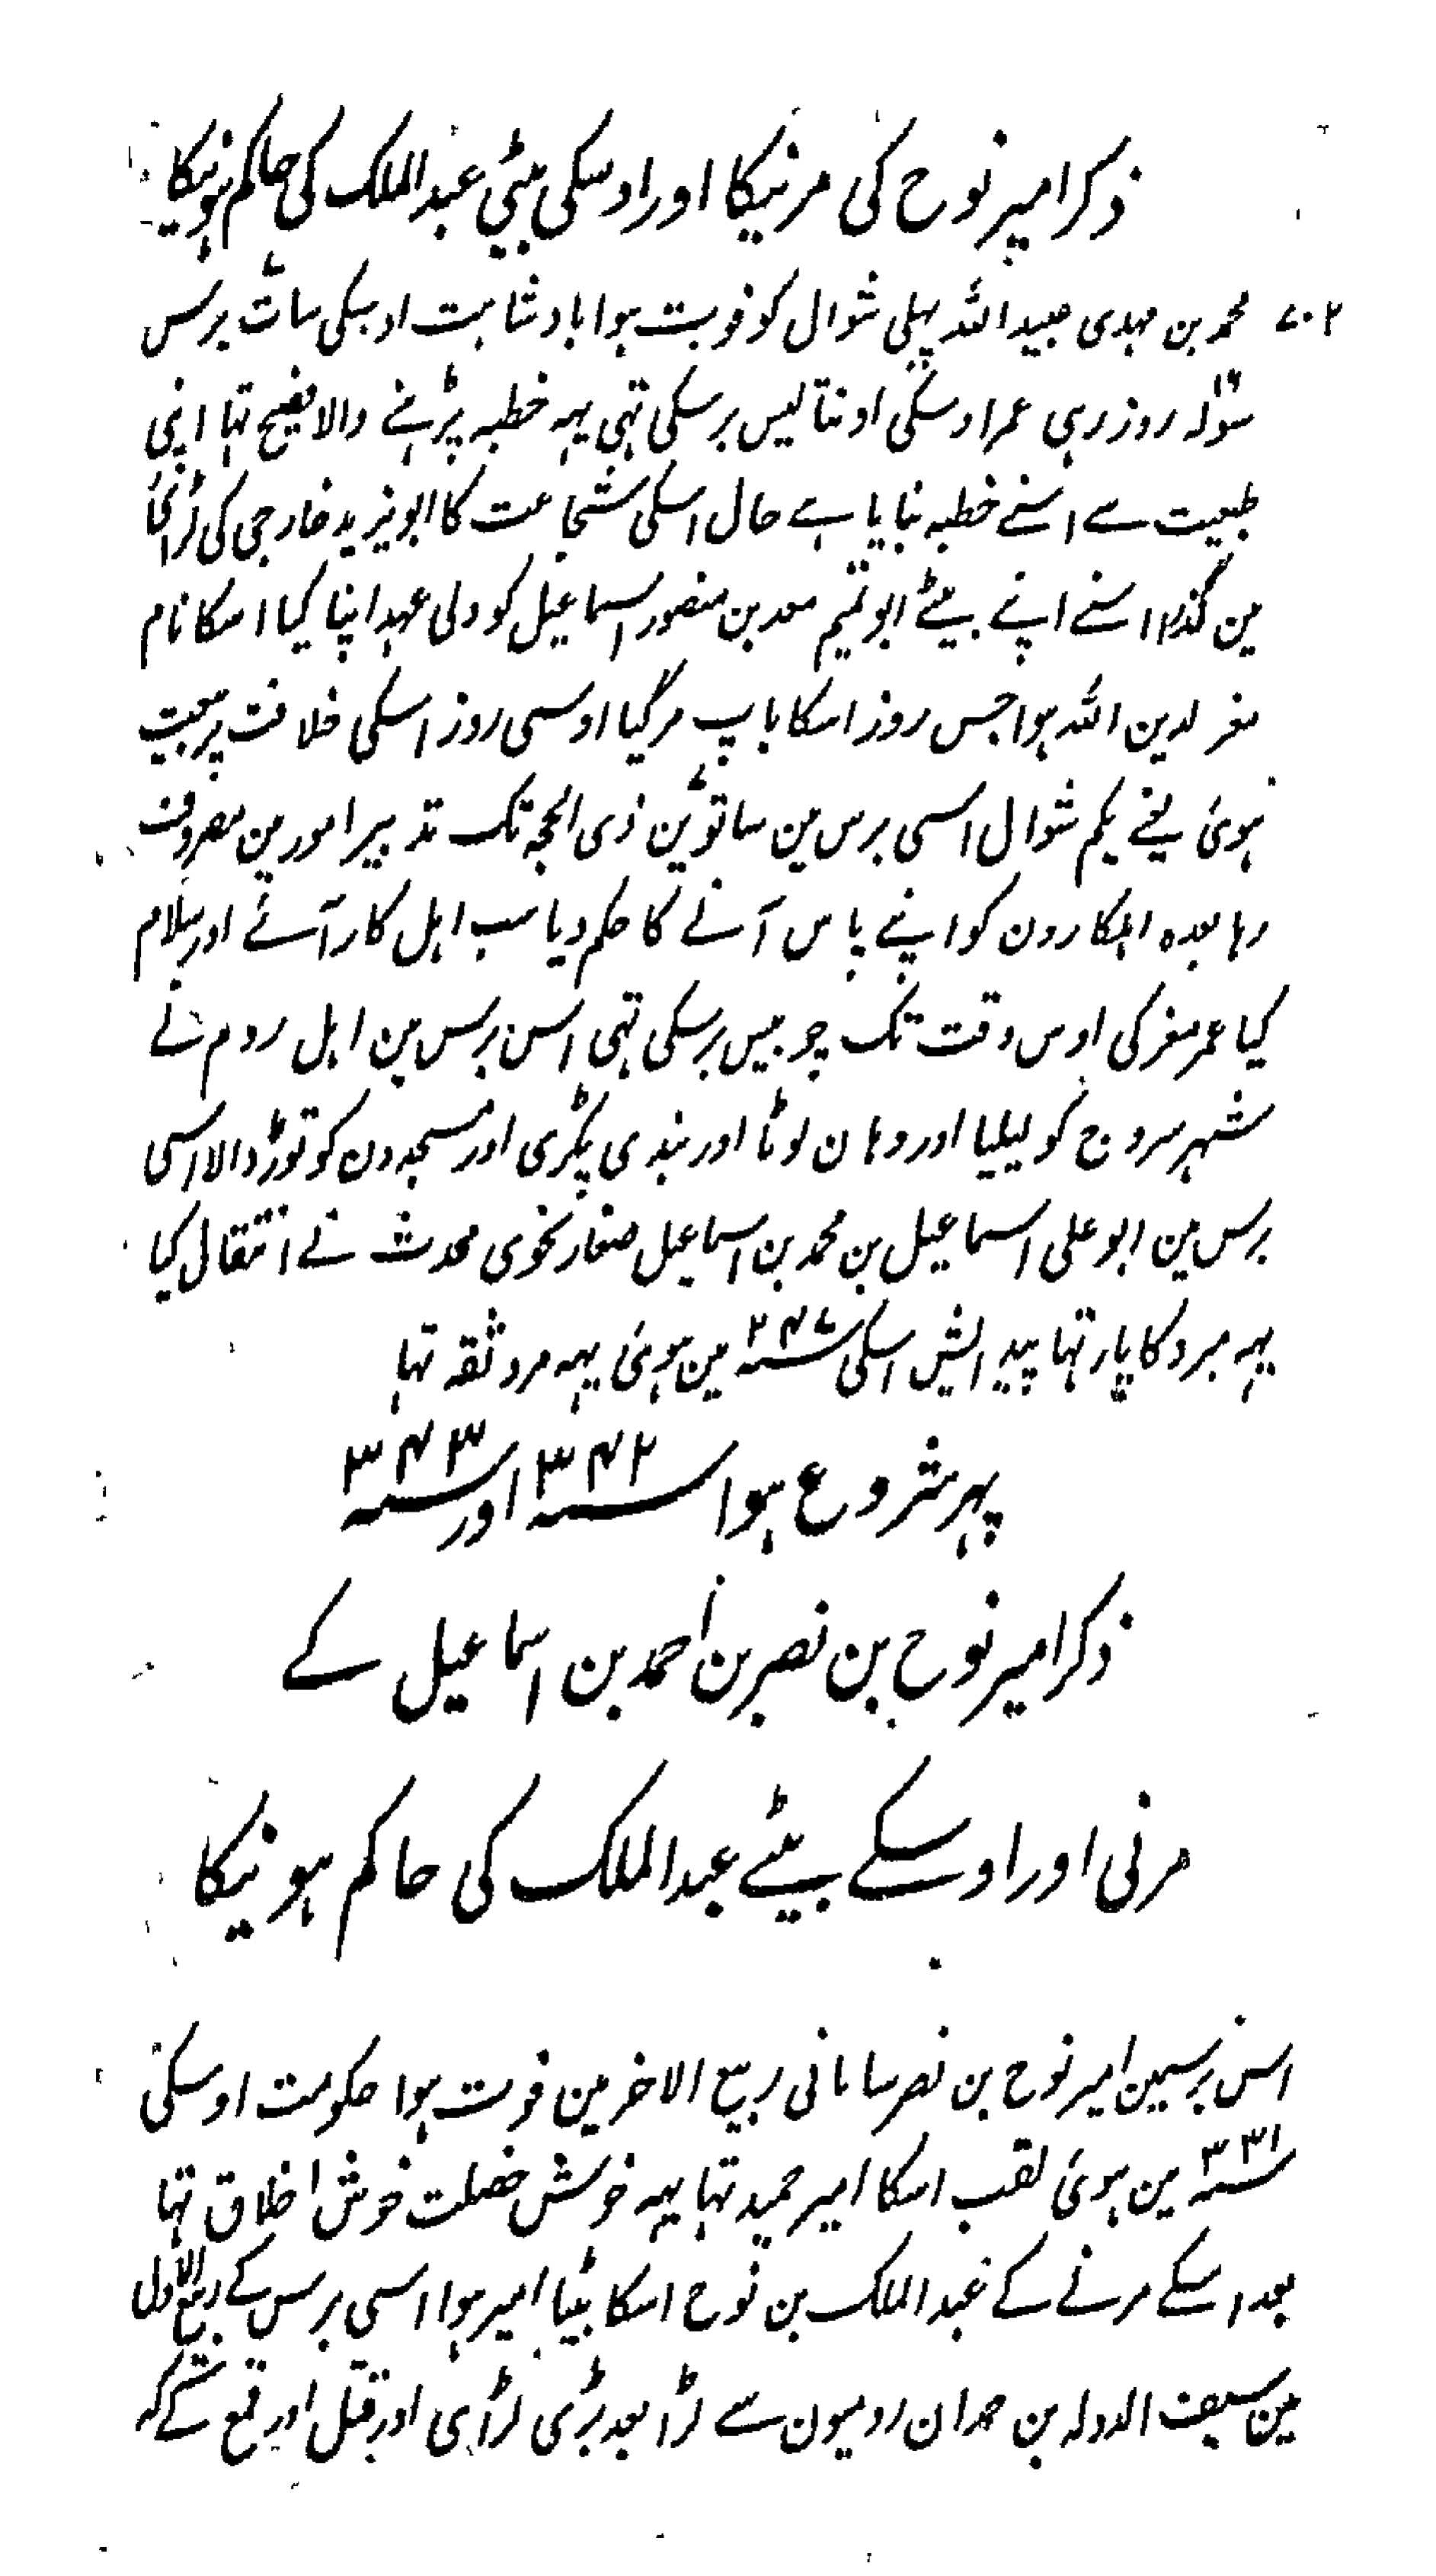 ذکر امیر نوح کی مرنیکا اور اوسکی بیٹی عبد الملک کی حاکم ہونیکا
۷۰۲
محمد بن مہدی عبید اللہ پہلی شوال کو فوت ہوا بادشاہت اوسکی سات برس
سولہ روز رہی عمر اوسکی اونتالیس برسکی تہی یہہ خطبہ پڑہنے والا فصیح تہا اپنی
طبیعت سے اسنے خطبہ بنایا ہے حال اسکی شجاعت کا ابو یزید خارجی کی لڑائی
مین گذرا اسنے اپنے بیٹے ابو تمیم معد بن منصور اسماعیل کو ولی عہد اپنا کیا اسکا نام
معز لدین اللہ ہوا جس روز اسکا باپ مر گیا اوسی روز اسکی خلافت پر بیعت
ہوئ یعنے یکم شوال اسی برس مین ساتوین ذی الحجہ تک تدبیر امور مین مصروف
رہا بعدہ اہلکارون کو اپنے پاس آنے کا حکم دیا سب اہل کار آئے اور سلام
کیا عمر معز کی اوس وقت تک چوبیس برسکی تہی اسں برس مین اہل روم نے
شہر سروج کو لیلیا اور وہان لوٹا اور بندی پکڑی اور مسجدون کو توڑ ڈالا اسی
برس مین ابو علی اسماعیل بن محمد بن اسماعیل صفار نحوی محدث نے انتقال کیا
یہہ مبرد کا یار تہا پیدایش اسکی سنہ ۲۴۷ مین ہوئ یہہ مرد ثقہ تہا
پہر شروع ہوا سنہ ۳۴۲ اور سنہ ۳۴۳
ذکر امیر نوح بن نصر بن احمد بن اسماعیل کے
مرنی اور اوسکے بیٹے عبد الملک کی حاکم ہونیکا
اسں برسمین امیر نوح بن نصر سامانی ربیع الاخر مین فوت ہوا حکومت اوسکی
سنہ ۳۳۱ مین ہوئ لقب اسکا امیر حمید تہا یہہ خوش خصلت خوش اخلاق تہا
بعد اسکے مرنے کے عبد الملک بن نوح اسکا بیٹا امیر ہوا اسی برس کے ربیع الاول
مین سیف الدولہ بن حمدان رومیون سے لڑا بعد بڑی لڑای اور قتل اور قمع کے کہ